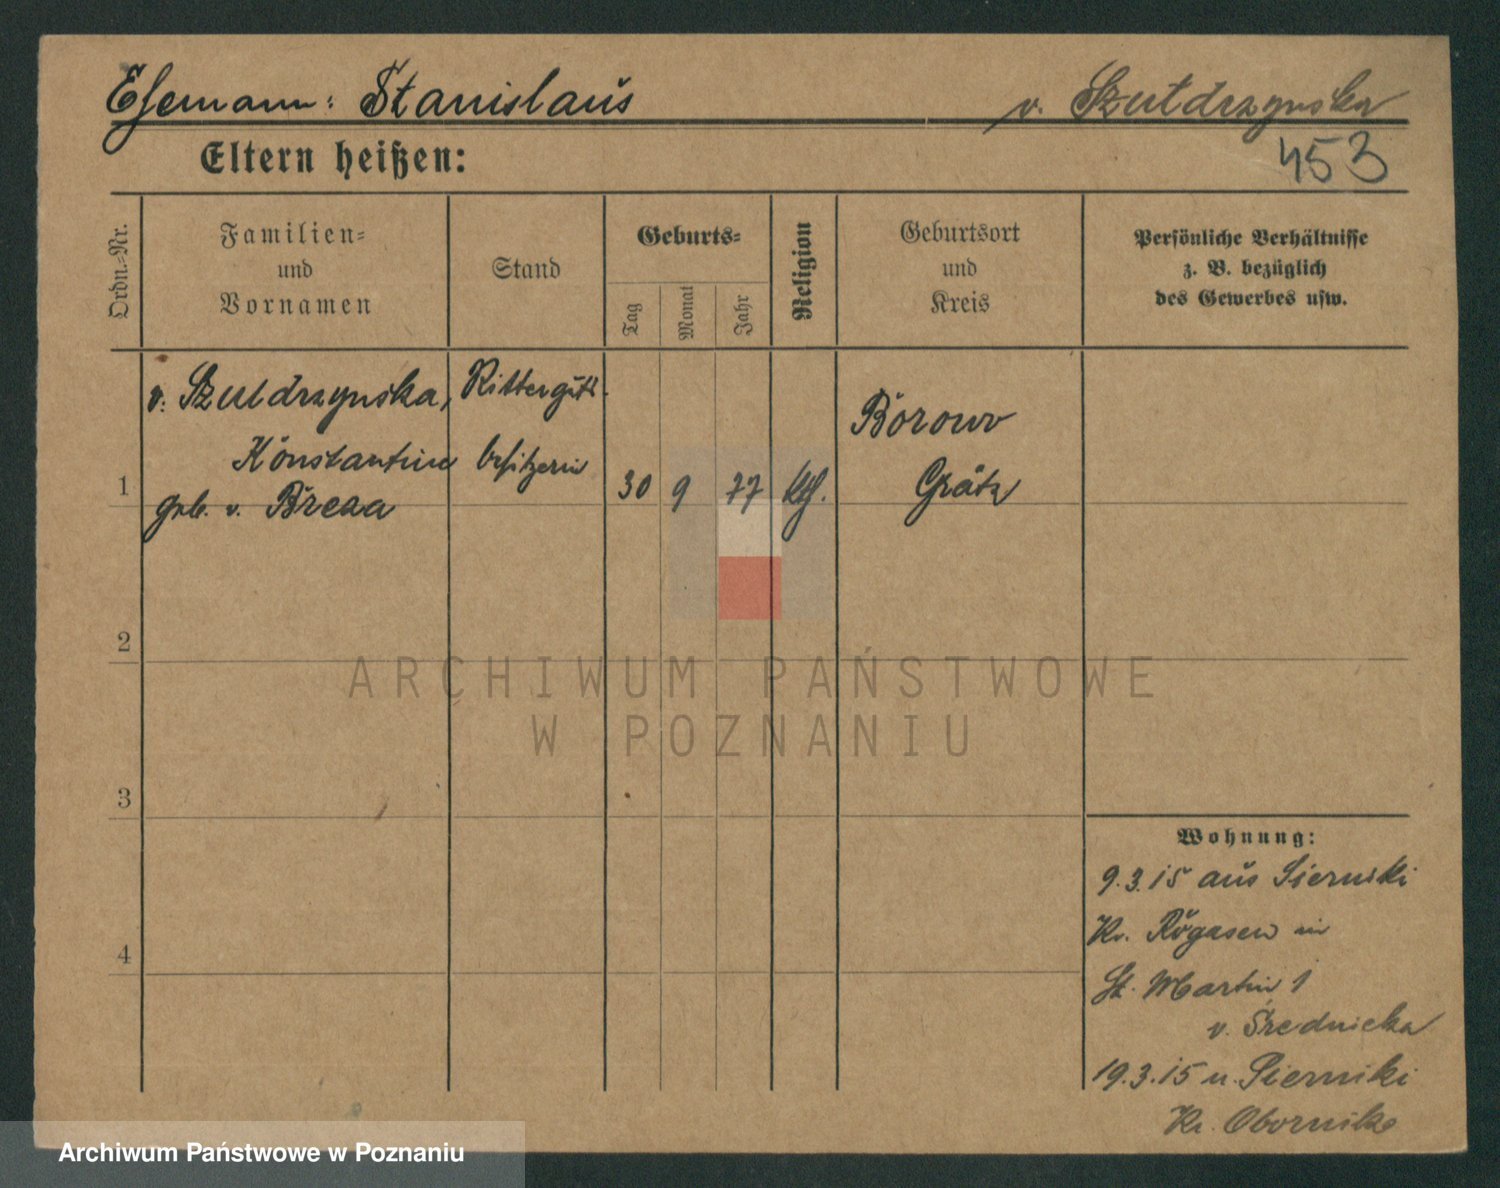 Ehemann: Stanislaus v. Szuldrzynska
Eltern heißen: 453
Ordn.-Nr.
Familien-
und
Vornamen
Stand
Geburts-
Tag
Monat
Jahr
Religion
Geburtsort
und
Kreis
Persönliche Verhältnisse
z. B. bezüglich
des Gewerbes usw.
1
v. Szuldrzynska,
Konstantine
geb. v. Breza
Ritterguts-
besitzerin
30 9 77 kth.
Borowo
Grätz
2
3
4
Wohnung:
9.3.15 aus Siernicki
Kr. Rogasen in
St. Martin 1
v. Srednicka
19.3.15 n. Sierniki
Kr. Obornik
ARCHIWUM PAŃSTWOWE
W POZNANIU
Archiwum Państwowe w Poznaniu